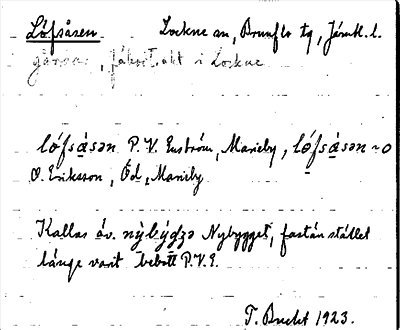 Löfsåsen Lockne sn, Brunflo tg, Jämtl. l.
i Lockne
lófsåsən P. V. Enström, Marieby, lófsåsən ~ o
O. Eriksson, Öd, Marieby
Kallas äv. Nybygget, fastän stället
länge varit bebott P.V.E.
T. Bucht 1923.